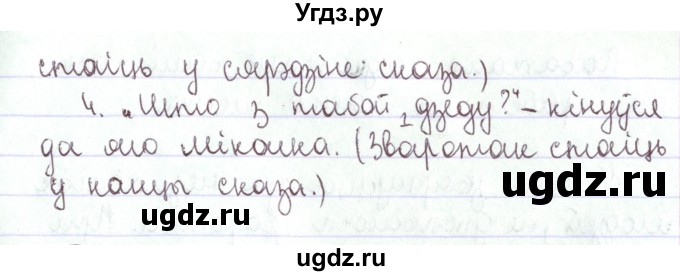 Угдз.ру
стаіць у сярэдзіне сказа.)
4. „Што з табой, дзеду?“ – кінуўся
да яго Міколка. (Зваротак стаіць
у канцы сказа.)
ugdz.ru
ugdz.ru
ugdz.ru